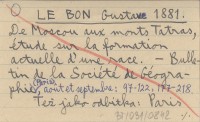 LE BON Gustave 1881.
De Moscou aux monts Tatras,
étude sur la formation
actuelle d'une race. - Bulle-
tin de la Société de Géogra-
phie, Paris, aout et septembre: 97-122, 177-218.
Też jako odbitka: Paris